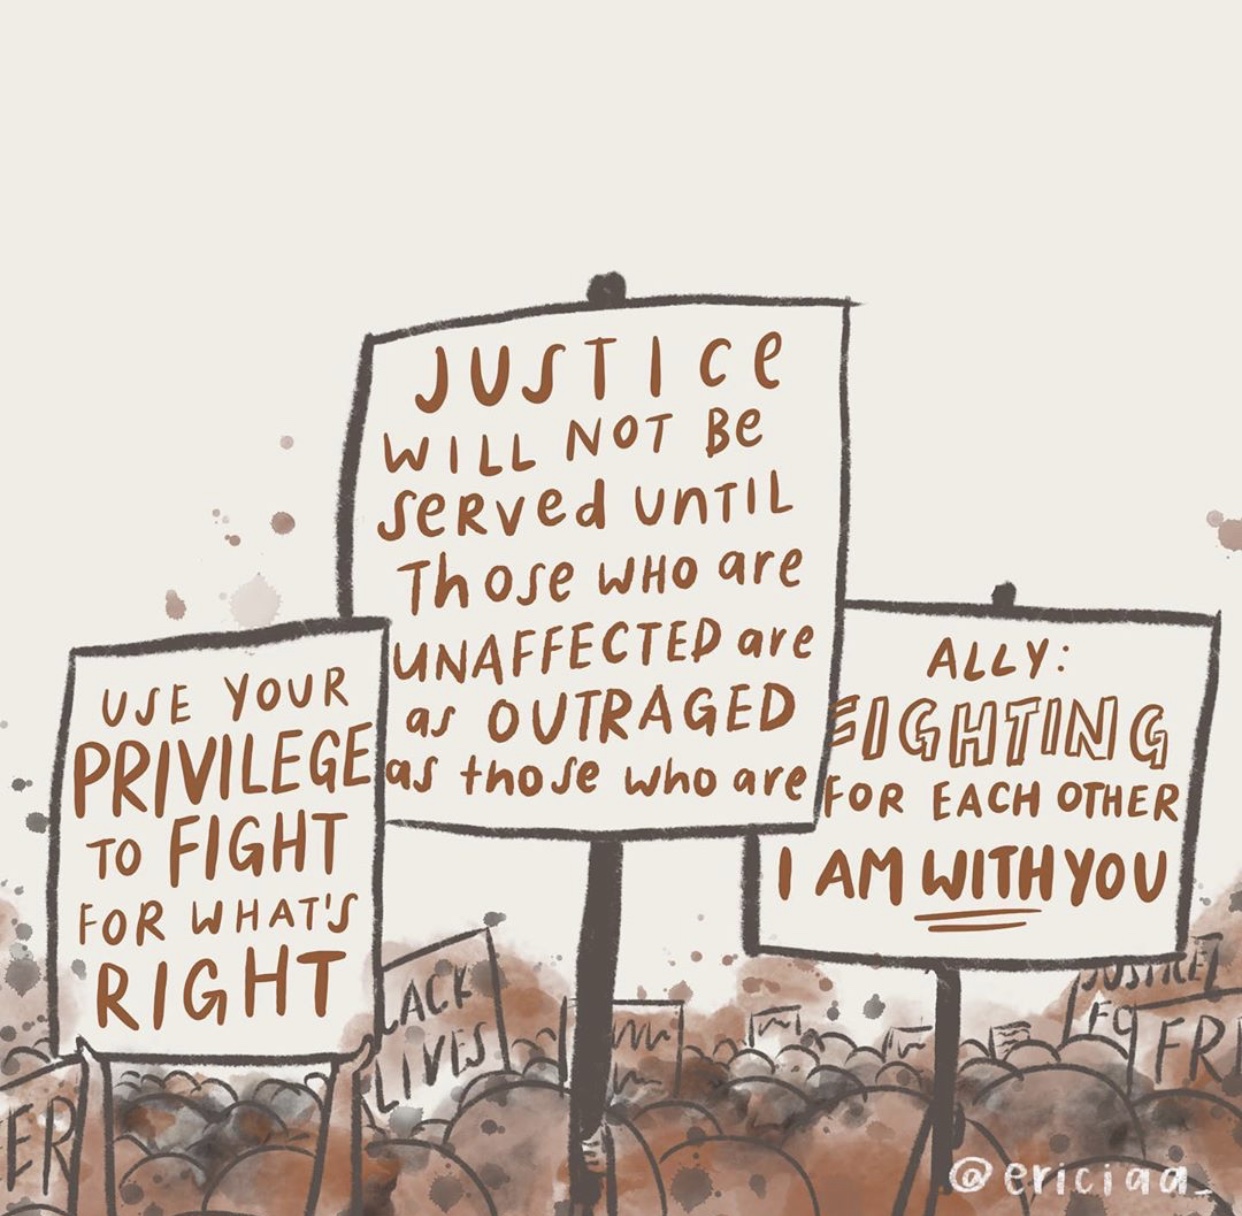 JUSTICe
WILL NOT Be
SeRVed UnTIL
Those WHO are
UNAFFECTED are
as OUTRAGED
as those who are
USE YOUR
PRIVILEGE
TO FIGHT
FOR WHAT'S
RIGHT
ALLY:
FIGHTING
FOR EACH OTHER
I AM WITH YOU
LACK
LIVES
JUSTICE
FO
FR
ER
@ericiaa_